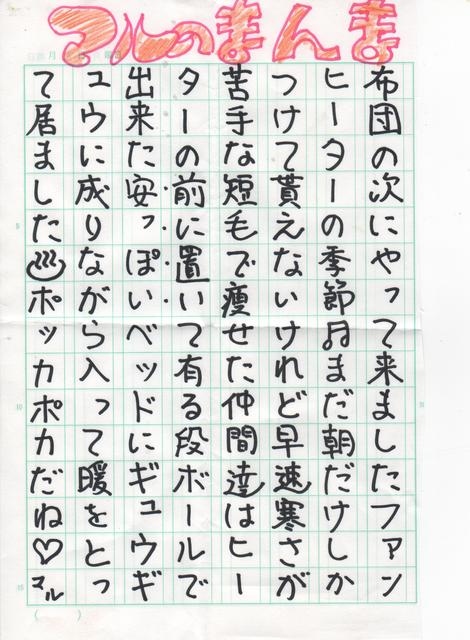 マルのまんま
布団の次にやって来ましたファン
ヒーターの季節♫まだ朝だけしか
つけて貰えないけれど早速寒さが
苦手な短毛で痩せた仲間達はヒー
ターの前に置いて有る段ボールで
出来た安っぽいベッドにギュウギ
ュウに成りながら入って暖をとっ
て居ました♨ポッカポカだね♡マル